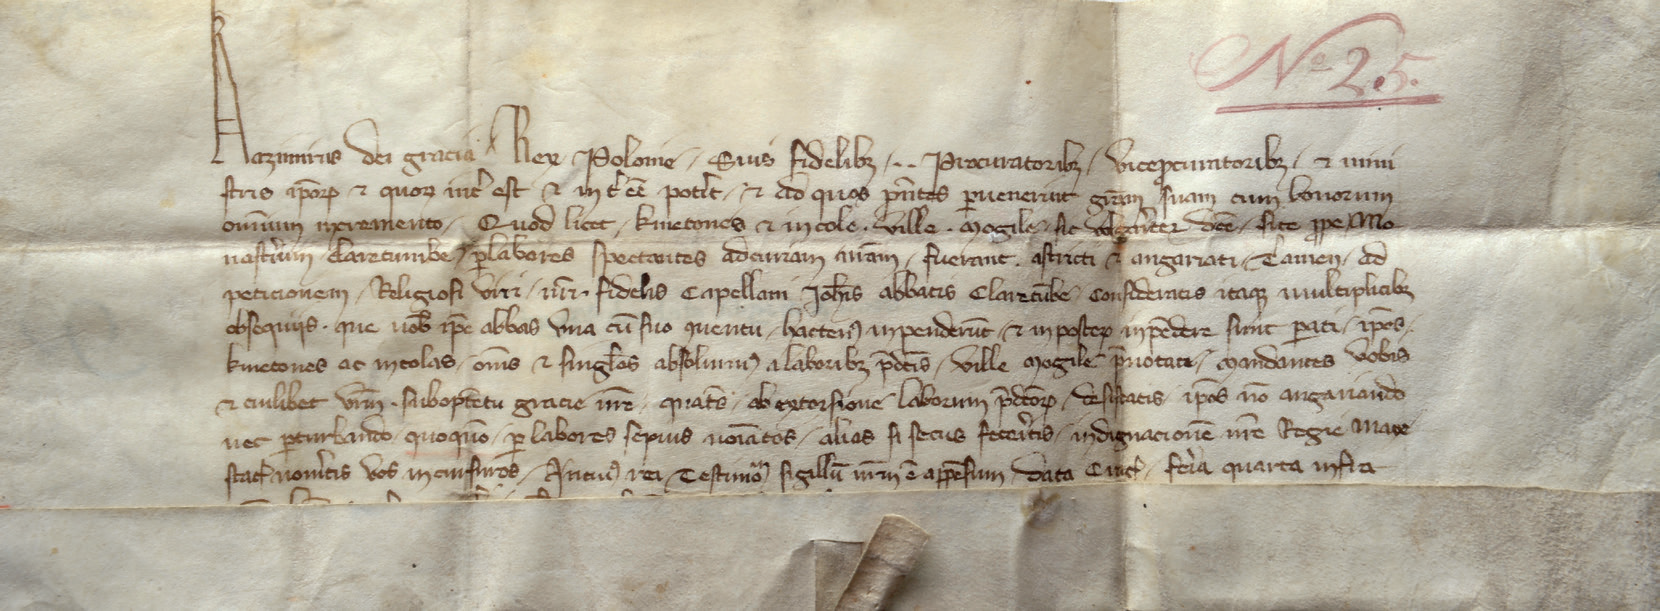 Nº 25.
Kazimirus dei gracia Rex Polonie, Suis fidelibz, .. Procuratoribz, viceprocuratoribz, et mini
stris ipõrꝫ et quorꝫ int̃est et int̃ eẽ pot̃it, et ad quos p̃ntes pervenerint gr̃am suam cum bonorum
om̃ium incremento, Quod licet, kmetones et incole, ville, Mogile, sic wlgarit̃er dc̃e, site prope Mo
nast̃ium Claretumbe, p labores spectantes ad curiam nr̃am, fuerant astricti et angariati, Tamen, ad
peticionem, Religiosi viri, nr̃i, fidelis Capellani Joh̃is abbatis Claretũbe, Consideratis itaqꝫ multiplicibz
obsequiis, que nob̃ ip̃e abbas vna cũ suo quentu, hacten9 inpenderũt, et inposterꝫ inpẽdere sunt p̃ati, ip̃os
kmetones ac incolas, om̃s et sing̃los absoluim9 a laboribz p̃dc̃is, ville Mogile p̃notate, Mandantes vobis
et cuilibet vr̃m, sub opt̃entu gracie nr̃e, quat̃s, ab extorsione laborum p̃dc̃orꝫ, desistatis, ip̃os nõ angariando
nec p̃turbando, quoquõ, p labores sepius noĩatos, alias si secus fec̃itis, indignacionẽ nr̃e Regie Maie
stat̃ noṽitis vos incursuros, In cui9 rei, Testimo͂ sigillũ nr̃m ẽ appẽsum, Data Cric̃, fer̃ia quarta infra